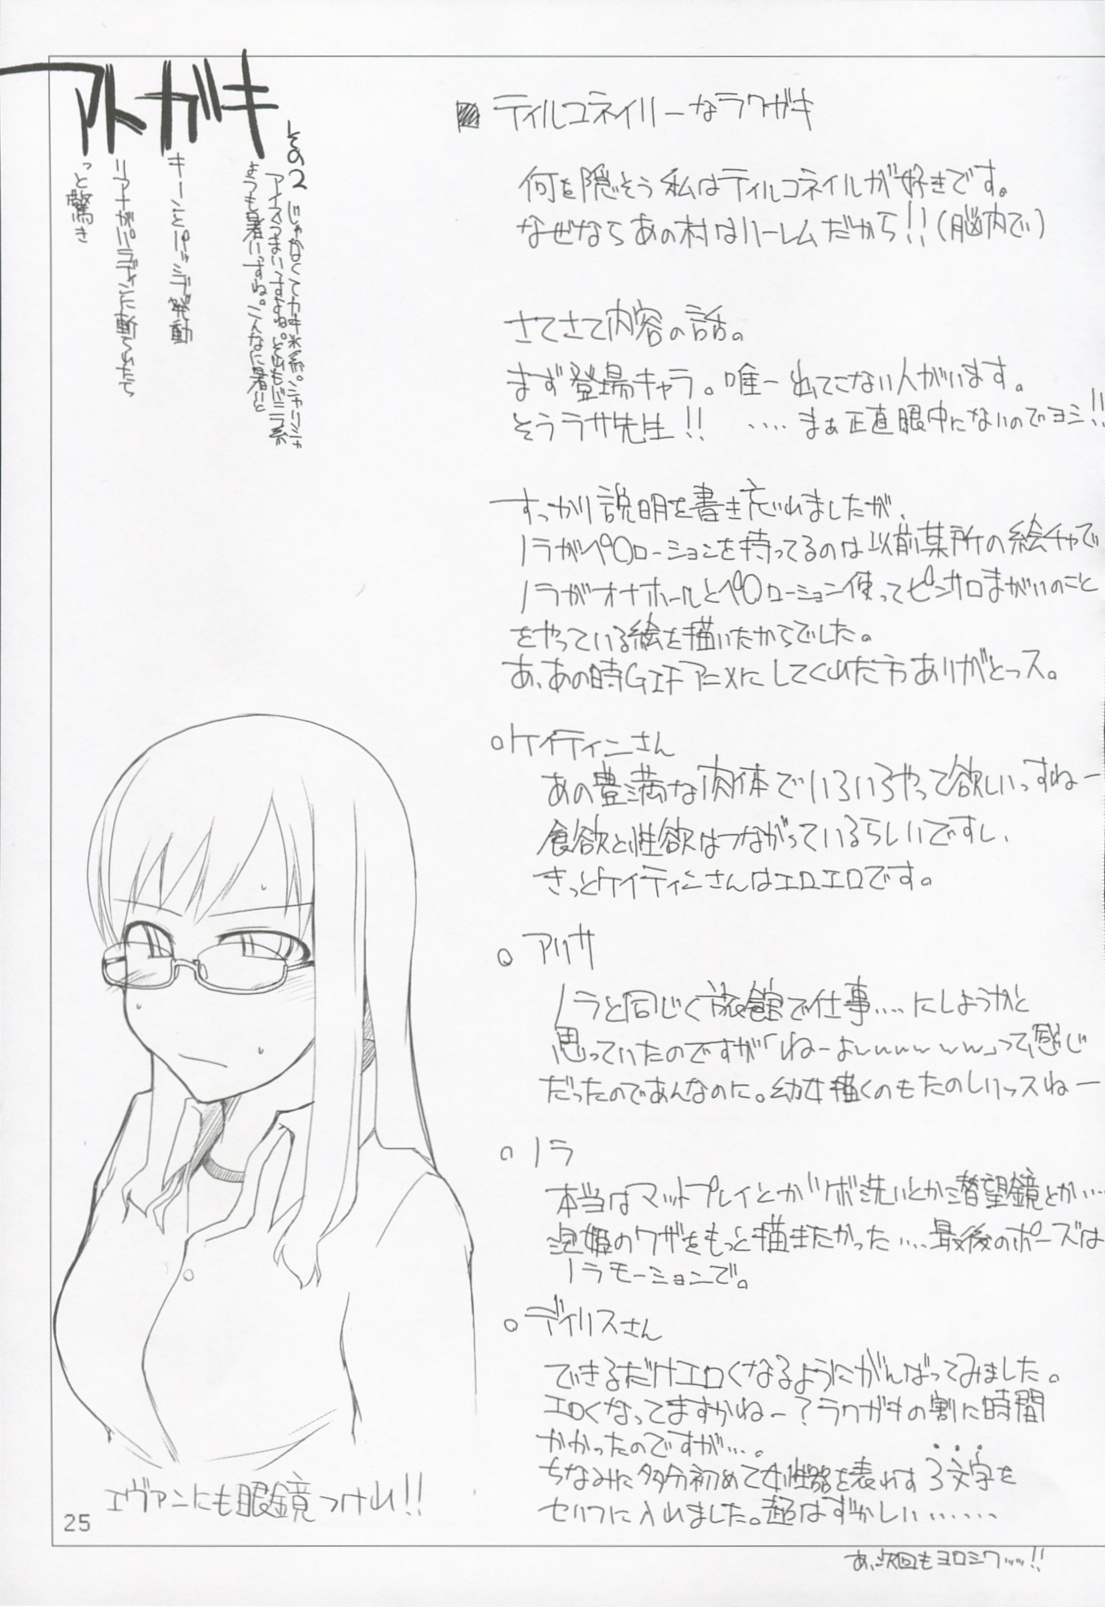 アトガキ
その2じゃなくてカキ氷系。シャリシャリ
アイスうまいっすよね。それもバニラ系
よつも暑いっすね。こんなに暑いと
キーンとパッシブ発動
リアナがパラディンに斬られたら
っと驚き
ティルコネイルーなラクガキ
何を隠そう私はティルコネイルが好きです。
なぜならあの村はハーレムだから!!(脳内で)
さてさて内容の話。
まず登場キャラ。唯一出てこない人がいます。
そうラサ先生!! ‥‥まぁ正直眼中にないのでヨシ!!
すっかり説明を書き忘れましたが、
ノラがペ○ローションを持ってるのは以前某所の絵チャで
ノラがオナホールとペ○ローション使ってピンサロまがいのこと
をやっている絵を描いたからでした。
あ、あの時GIFアニメにしてくれた方ありがとっス。
○ケイティンさん
あの豊満な肉体でいろいろやって欲しいっすねー
食欲と性欲はつながっているらしいですし、
きっとケイティンさんはエロエロです。
○アリサ
ノラと同じく旅館で仕事‥‥にしようかと
思っていたのですが「ねーよwwwwww」って感じ
だったのであんなのに。幼女描くのもたのしいッスねー
○ノラ
本当はマットプレイとかツボ洗いとか潜望鏡とか‥‥
泡姫のワザをもっと描きたかった‥‥最後のポーズは
ノラモーションで。
○ディリスさん
できるだけエロくなるようにがんばってみました。
エロくなってますかねー?ラクガキの割に時間
かかったのですが‥‥。
ちなみに多分初めて女性器を表わす3文字を
セリフに入れました。超はずかしい‥‥‥
エヴァンにも眼鏡つけれ!!
25
あ、次回もヨロシクッッ!!